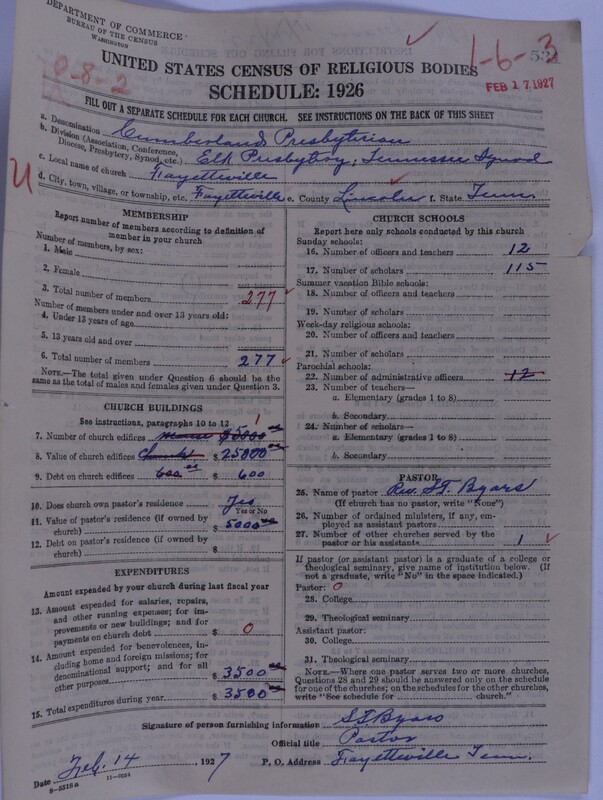 DEPARTMENT OF COMMERCE
BUREAU OF THE CENSUS
WASHINGTON
1-6-3
534
FEB 17 1927
UNITED STATES CENSUS OF RELIGIOUS BODIES
SCHEDULE: 1926
FILL OUT A SEPARATE SCHEDULE FOR EACH CHURCH. SEE INSTRUCTIONS ON THE BACK OF THIS SHEET
a. Denomination Cumberland Presbyterian
b. Division (Association, Conference, Diocese, Presbytery, Synod, etc.) Elk Presbytery; Tennessee Synod
c. Local name of church Fayetteville
d. City, town, village, or township, etc. Fayetteville e. County Lincoln f. State Tenn.
MEMBERSHIP
Report number of members according to definition of
member in your church
Number of members, by sex:
1. Male
2. Female
3. Total number of members 277
Number of members under and over 13 years old:
4. Under 13 years of age
5. 13 years old and over
6. Total number of members 277
NOTE.—The total given under Question 6 should be the
same as the total of males and females given under Question 3.
CHURCH BUILDINGS
See instructions, paragraphs 10 to 12 1
7. Number of church edifices $5000 00
8. Value of church edifices Church $ 25000 00
9. Debt on church edifices 600 00 $ 600
10. Does church own pastor's residence Yes
Yes or No
11. Value of pastor's residence (if owned by
church) $ 5000 00
12. Debt on pastor's residence (if owned by
church) $
EXPENDITURES
Amount expended by your church during last fiscal year
13. Amount expended for salaries, repairs,
and other running expenses; for im-
provements or new buildings; and for
payments on church debt $ 0
14. Amount expended for benevolences, in-
cluding home and foreign missions; for
denominational support; and for all
other purposes $ 3500 00
15. Total expenditures during year $ 3500 00
CHURCH SCHOOLS
Report here only schools conducted by this church
Sunday schools:
16. Number of officers and teachers 12
17. Number of scholars 115
Summer vacation Bible schools:
18. Number of officers and teachers
19. Number of scholars
Week-day religious schools:
20. Number of officers and teachers
21. Number of scholars
Parochial schools:
22. Number of administrative officers 12
23. Number of teachers—
a. Elementary (grades 1 to 8)
b. Secondary
24. Number of scholars—
a. Elementary (grades 1 to 8)
b. Secondary
PASTOR
25. Name of pastor Rev. S.T. Byars
(If church has no pastor, write "None")
26. Number of ordained ministers, if any, em-
ployed as assistant pastors
27. Number of other churches served by the
pastor or his assistants 1
If pastor (or assistant pastor) is a graduate of a college or
theological seminary, give name of institution below. (If
not a graduate, write "No" in the space indicated.)
Pastor: 0
28. College
29. Theological seminary
Assistant pastor:
30. College
31. Theological seminary
NOTE.—Where one pastor serves two or more churches,
Questions 28 and 29 should be answered only on the schedule
for one of the churches; on the schedules for the other churches,
write "See schedule for church."
Signature of person furnishing information S.T. Byars
Official title Pastor
Date Feb. 14, 1927 P. O. Address Fayetteville Tenn.
8-5518a 11-9034